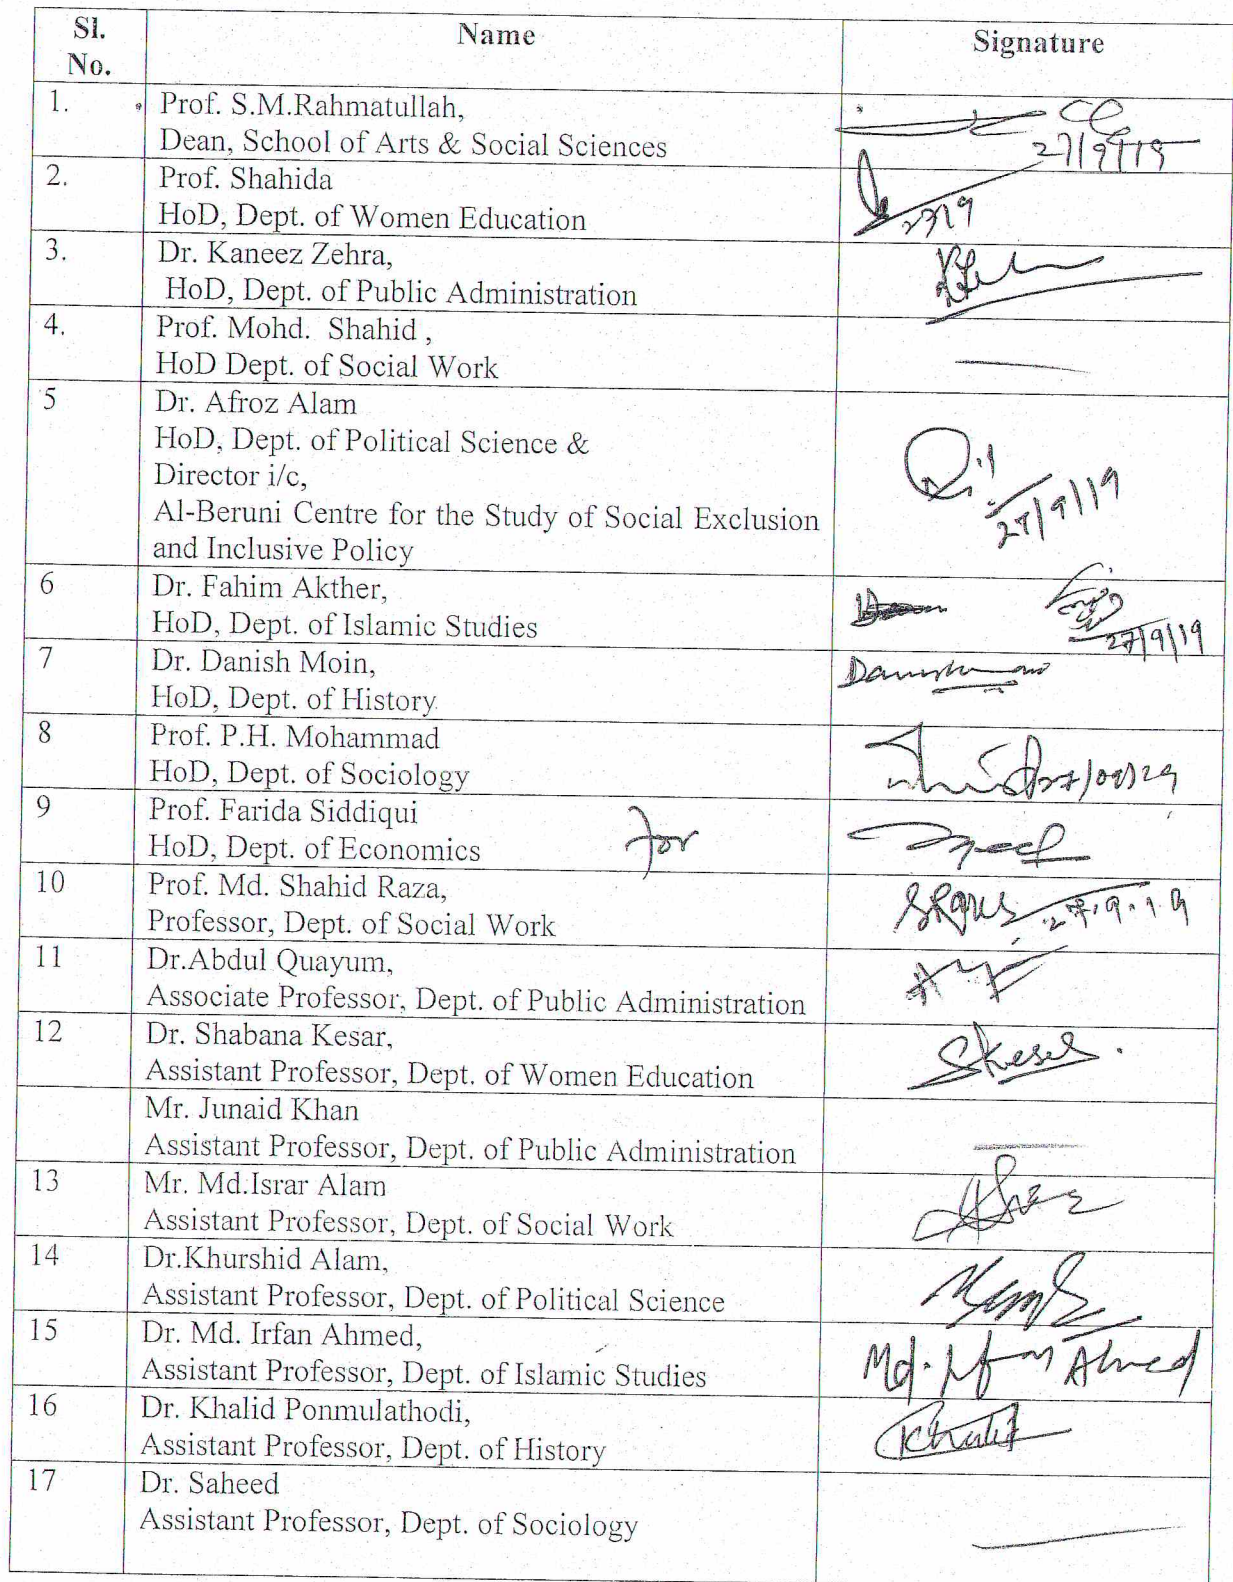 Sl.
No.
Name
Signature
1.
Prof. S.M.Rahmatullah,
Dean, School of Arts & Social Sciences
27/9/19
2.
Prof. Shahida
HoD, Dept. of Women Education
27/9
3.
Dr. Kaneez Zehra,
HoD, Dept. of Public Administration
4.
Prof. Mohd. Shahid ,
HoD Dept. of Social Work
5
Dr. Afroz Alam
HoD, Dept. of Political Science &
Director i/c,
Al-Beruni Centre for the Study of Social Exclusion
and Inclusive Policy
27/9/19
6
Dr. Fahim Akther,
HoD, Dept. of Islamic Studies
27/9/19
7
Dr. Danish Moin,
HoD, Dept. of History
8
Prof. P.H. Mohammad
HoD, Dept. of Sociology
9
Prof. Farida Siddiqui
HoD, Dept. of Economics
for
10
Prof. Md. Shahid Raza,
Professor, Dept. of Social Work
27.9.19
11
Dr.Abdul Quayum,
Associate Professor, Dept. of Public Administration
12
Dr. Shabana Kesar,
Assistant Professor, Dept. of Women Education
Mr. Junaid Khan
Assistant Professor, Dept. of Public Administration
13
Mr. Md.Israr Alam
Assistant Professor, Dept. of Social Work
14
Dr.Khurshid Alam,
Assistant Professor, Dept. of Political Science
15
Dr. Md. Irfan Ahmed,
Assistant Professor, Dept. of Islamic Studies
Md. Irfan Ahmed
16
Dr. Khalid Ponmulathodi,
Assistant Professor, Dept. of History
Khalid
17
Dr. Saheed
Assistant Professor, Dept. of Sociology